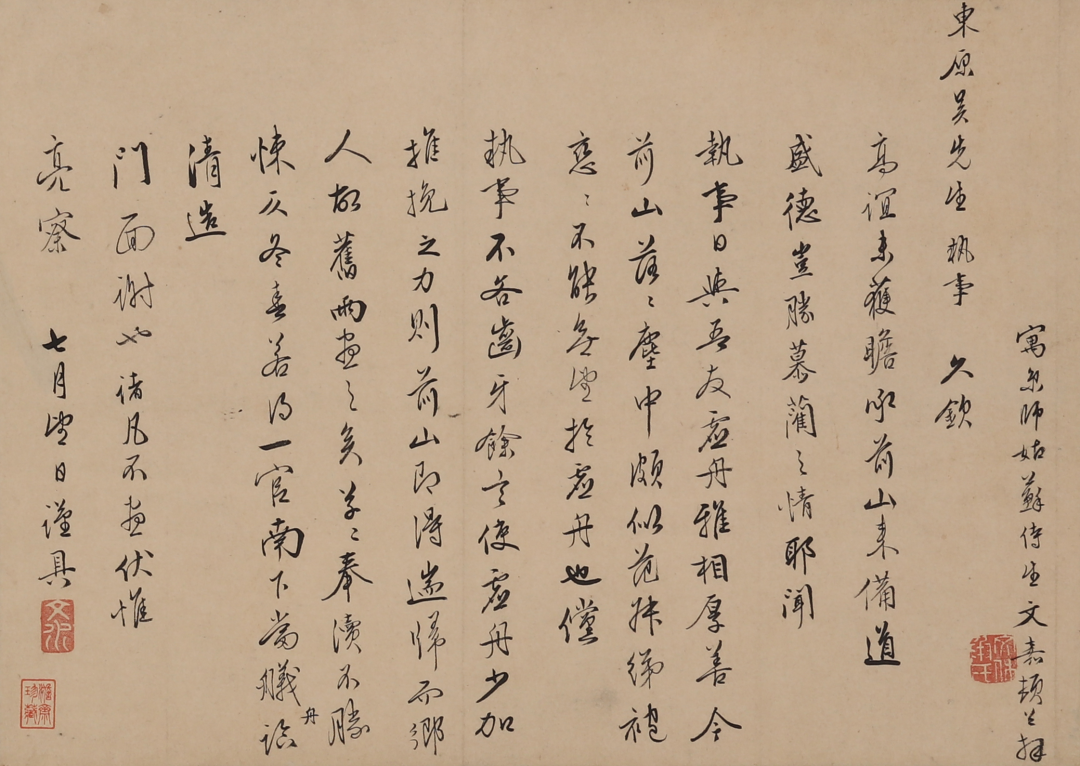 寓京師姑蘇侍生文嘉頓首拜
東原吳先生執事 久欽
高誼未獲瞻承前山來備道
盛德豈勝慕藺之情耶聞
執事日與吾友虛舟雅相厚善今
前山落〻塵中頗似范叔綈袍
戀〻不能無望於虛舟也儻
執事不吝齒牙餘言使虛舟少加
推挽之力則前山即得遄歸而鄉
人故舊兩盡之矣草〻奉瀆不勝
悚仄冬春若得一官南下當艤舟詣
清造
門面謝也諸凡不盡伏惟
亮察 七月望日謹具
文水